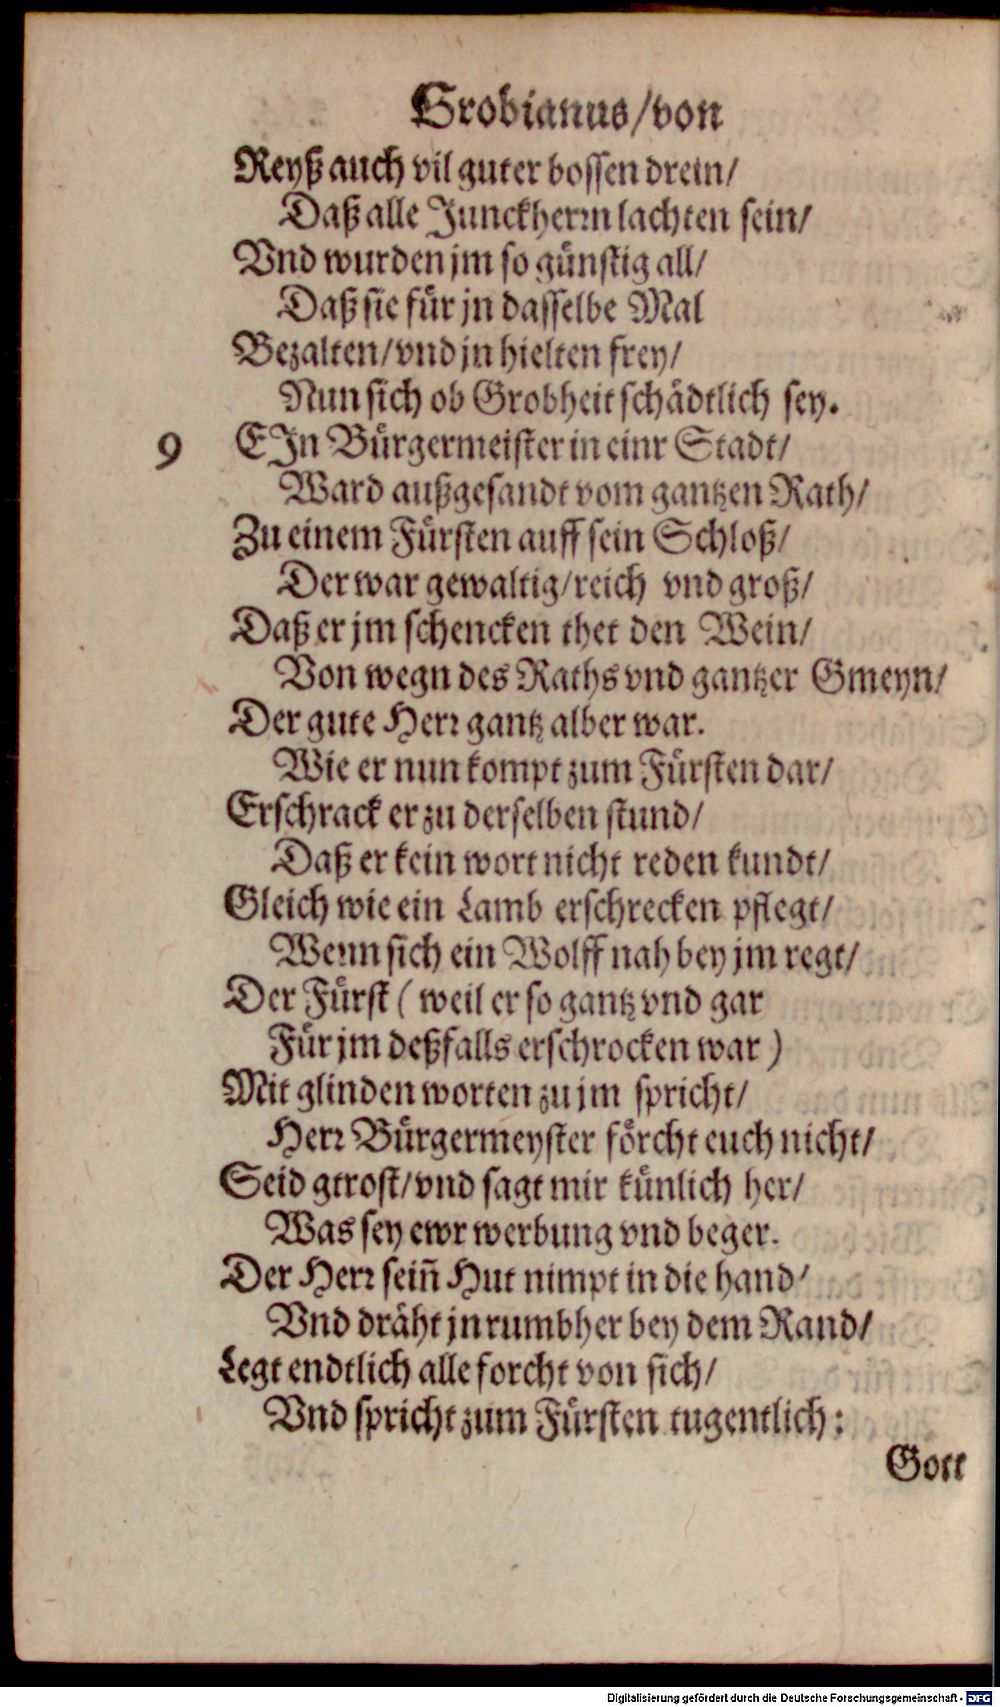 Grobianus/von
Reyß auch vil guter bossen drein/
Daß alle Junckherrn lachten sein/
Vnd wurden jm so günstig all/
Daß sie für jn dasselbe Mal
Bezalten/vnd jn hielten frey/
Nun sich ob Grobheit schädtlich sey.
9 EJn Bürgermeister in einr Stadt/
Ward außgesandt vom gantzen Rath/
Zu einem Fürsten auff sein Schloß/
Der war gewaltig/reich vnd groß/
Daß er jm schencken thet den Wein/
Von wegn des Raths vnd gantzer Gmeyn/
Der gute Herr gantz alber war.
Wie er nun kompt zum Fürsten dar/
Erschrack er zu derselben stund/
Daß er kein wort nicht reden kundt/
Gleich wie ein Lamb erschrecken pflegt/
Wenn sich ein Wolff nah bey jm regt/
Der Fürst (weil er so gantz vnd gar
Für jm deßfalls erschrocken war)
Mit glinden worten zu jm spricht/
Herr Bürgermeyster förcht euch nicht/
Seid gtrost/vnd sagt mir künlich her/
Was sey ewr werbung vnd beger.
Der Herr sein̄ Hut nimpt in die hand/
Vnd dräht jn rumbher bey dem Rand/
Legt endtlich alle forcht von sich/
Vnd spricht zum Fürsten tugentlich:
Gott
Digitalisierung gefördert durch die Deutsche Forschungsgemeinschaft - DFG